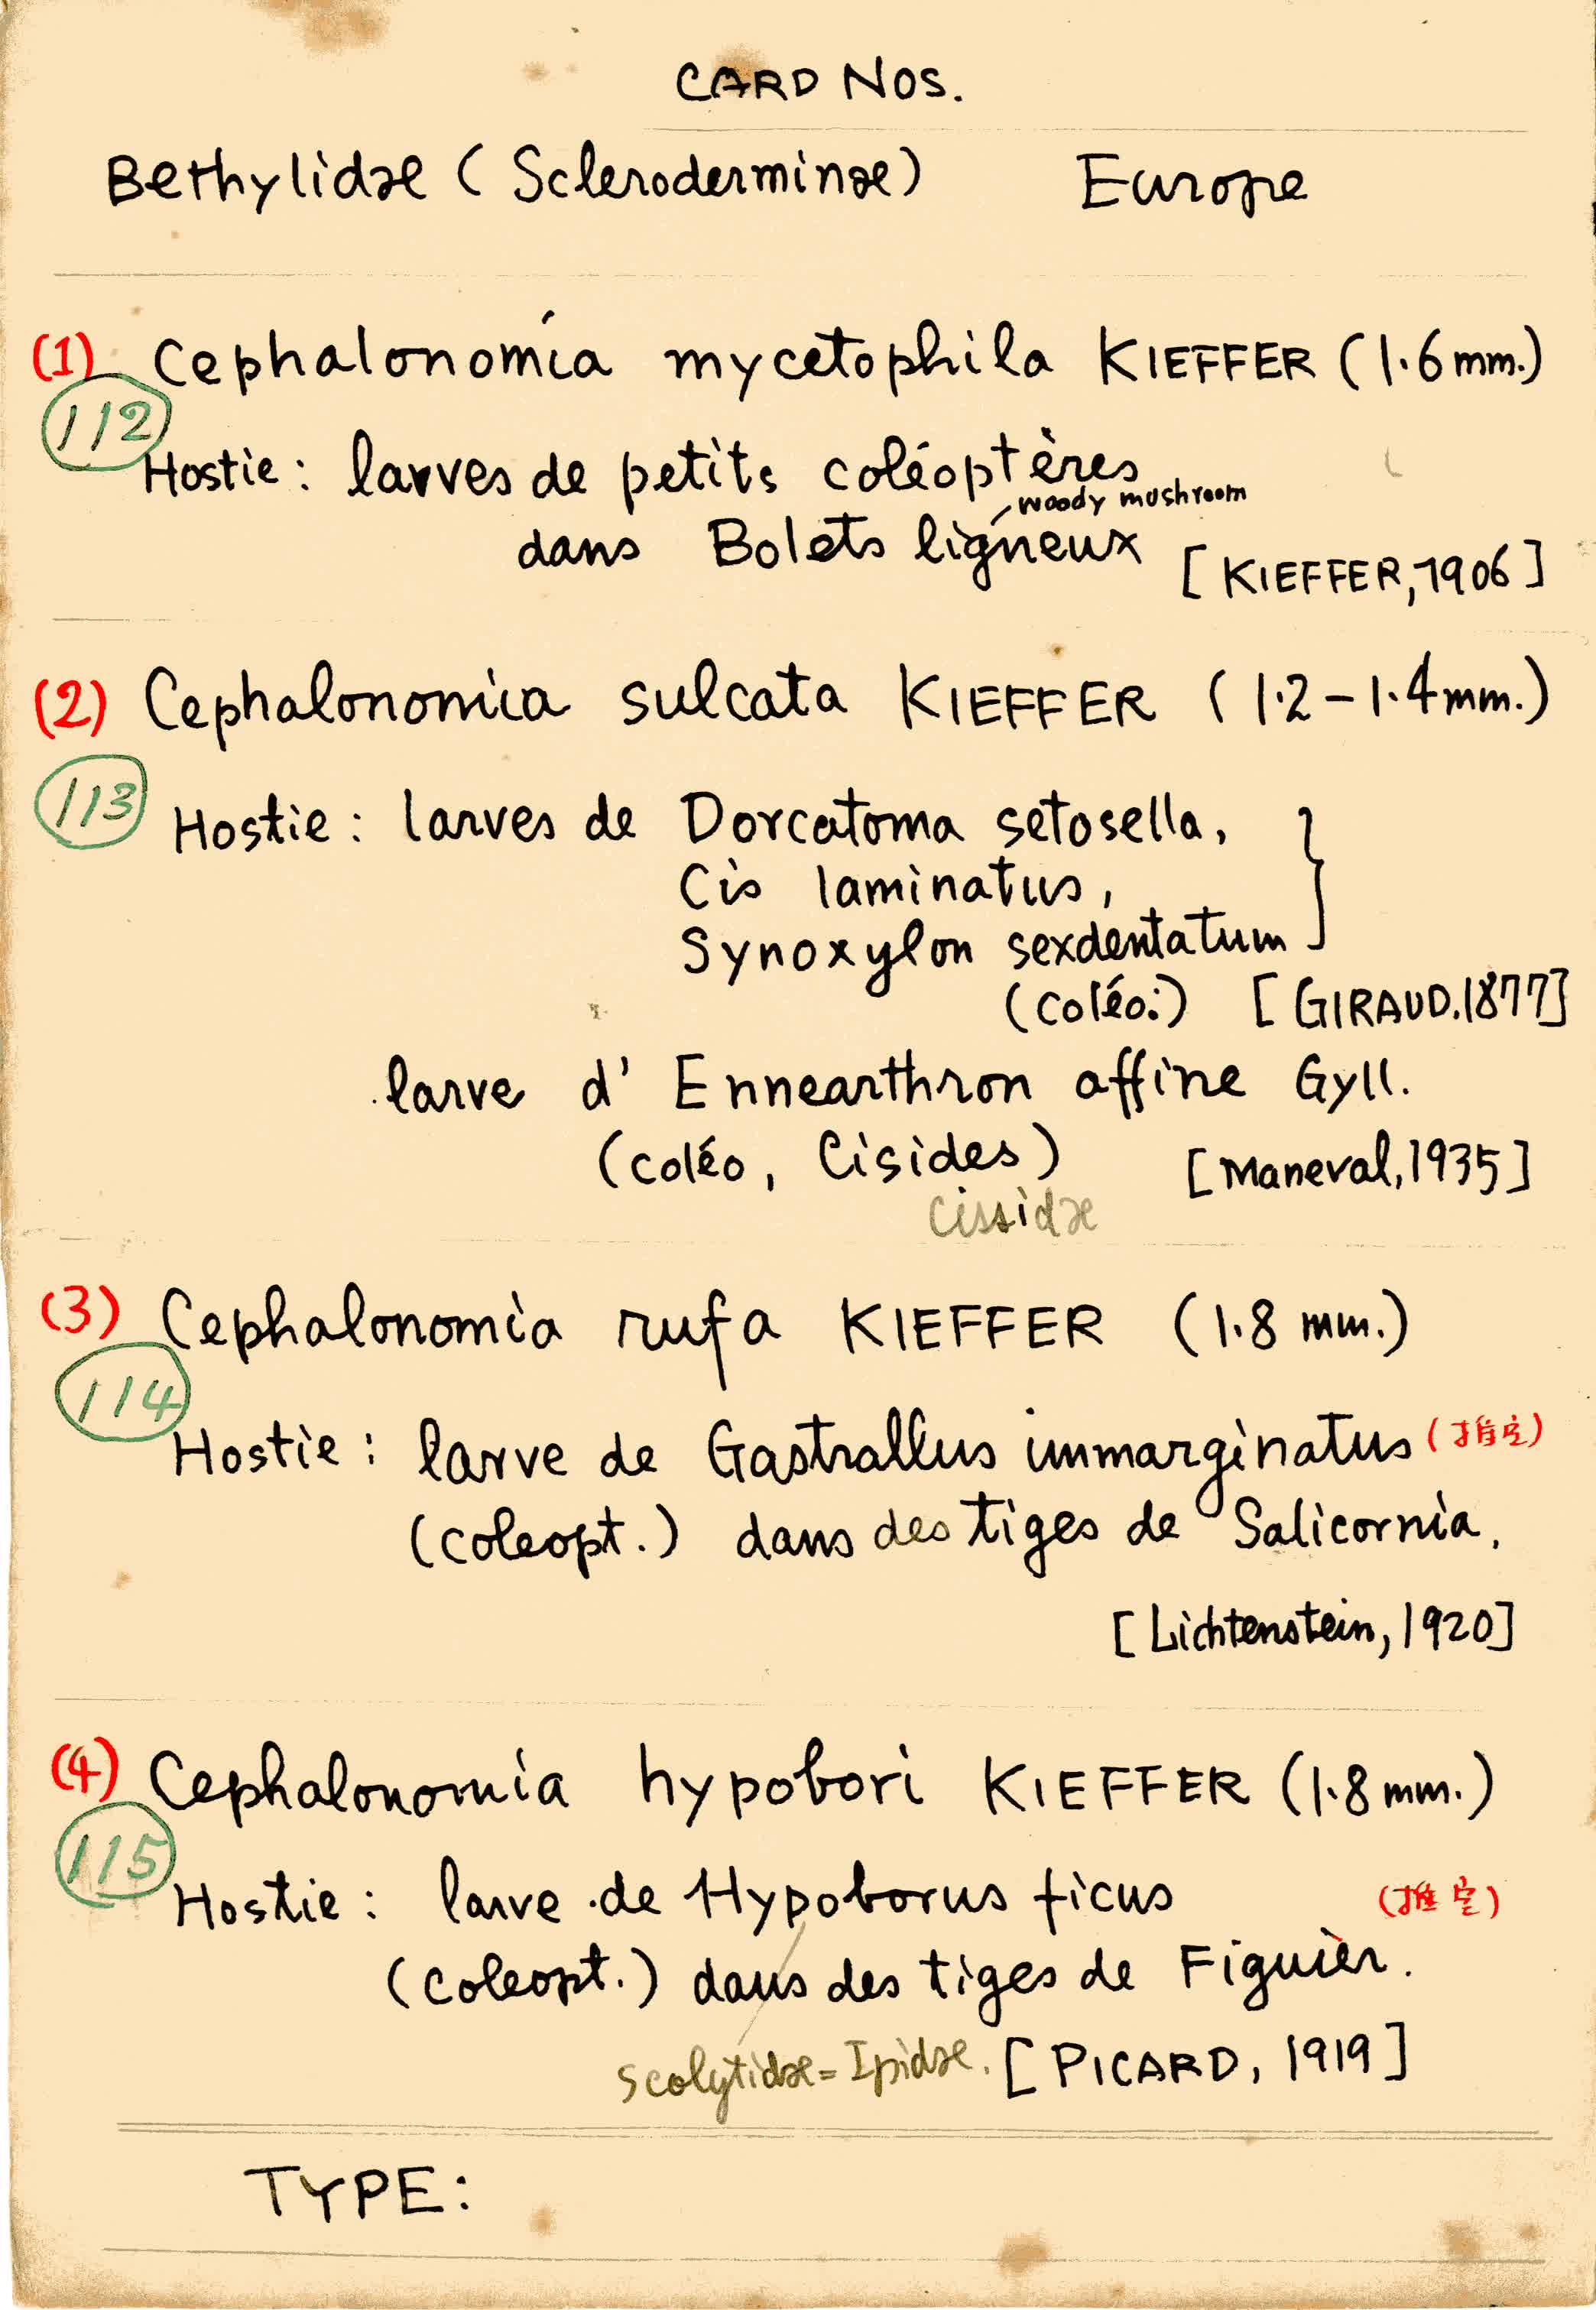 CARD NOS.
Bethylidæ (Scleroderminæ) Europe
(1) Cephalonomia mycetophila KIEFFER (1.6 mm.)
112
Hostie: larves de petits coléoptères
woody mushroom
dans Bolets ligneux [KIEFFER, 1906]
(2) Cephalonomia sulcata KIEFFER (1.2-1.4 mm.)
113
Hostie: larves de Dorcatoma setosella,
Cis laminatus,
Synoxylon sexdentatum
(coléo.) [GIRAUD.1877]
larve d' Ennearthron affine Gyll.
(coléo, Cisides) [Maneval, 1935]
Cissidæ
(3) Cephalonomia rufa KIEFFER (1.8 mm.)
114
Hostie: larve de Gastrallus immarginatus (推定)
(coleopt.) dans des tiges de Salicornia.
[Lichtenstein, 1920]
(4) Cephalonomia hypobori KIEFFER (1.8 mm.)
115
Hostie: larve de Hypoborus ficus (推定)
(coleopt.) dans des tiges de Figuier.
Scolytidæ=Ipidæ. [PICARD, 1919]
TYPE: